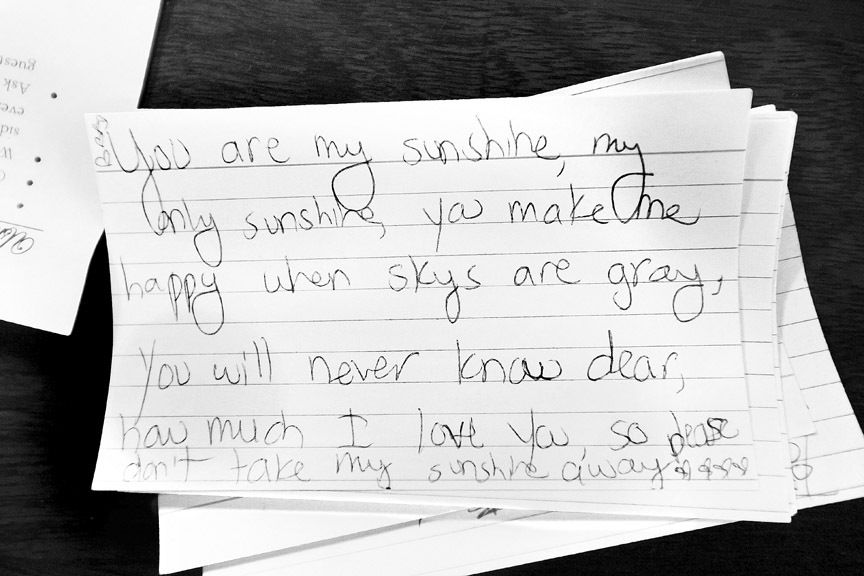 You are my sunshine, my
only sunshine, you make me
happy when skys are gray,
You will never know dear,
how much I love you, so please
don't take my sunshine away
guest
Ask
eve
sid